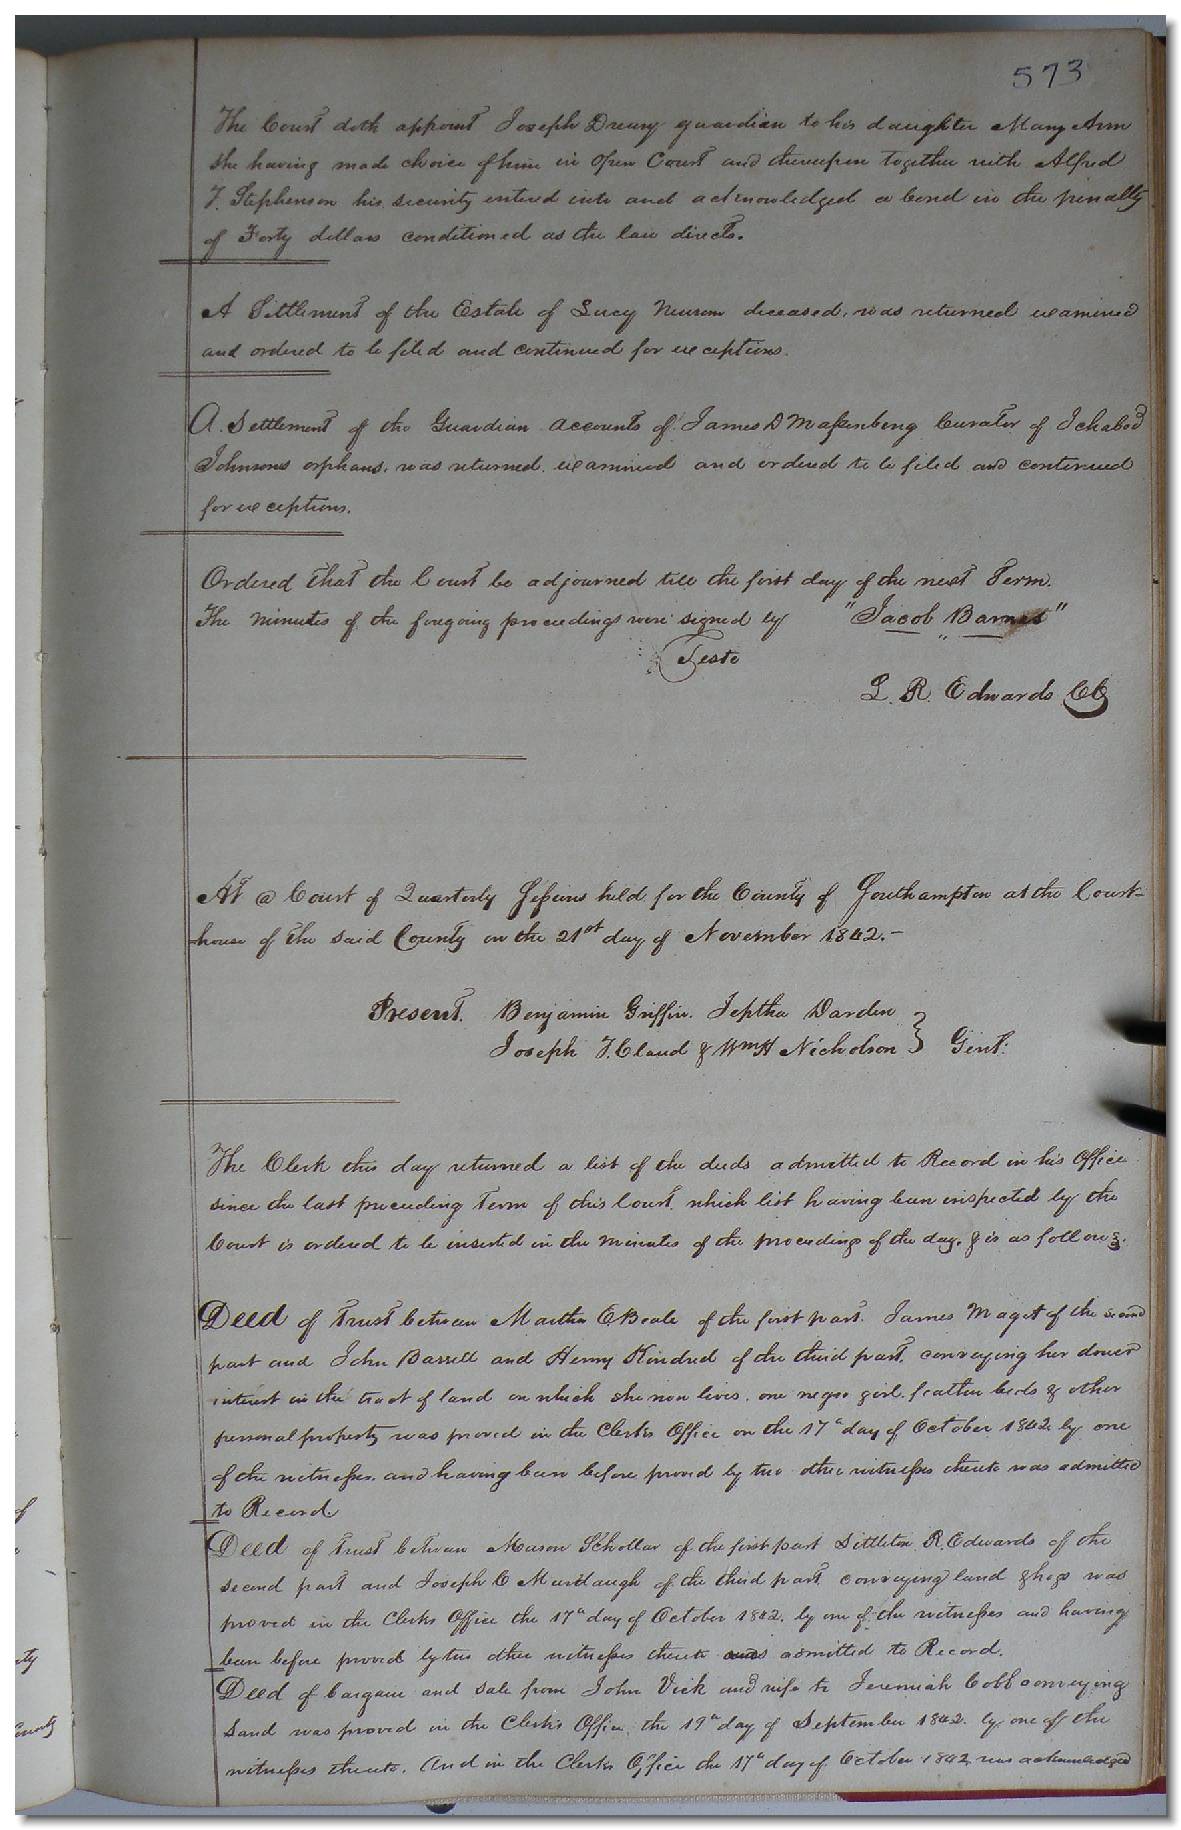 573
The Court doth appoint Joseph Drewry guardian to his daughter Mary Ann
she having made choice of him in Open Court and thereupon together with Alfred
J. Stephenson his security entered into and acknowledged a bond in the penalty
of Forty dollars conditioned as the law directs.
A Settlement of the Estate of Lucy Newsom deceased, was returned examined
and ordered to be filed and continued for exceptions.
A Settlement of the Guardian accounts of James D Massenburg Curator of Ichabod
Johnsons orphans, was returned, examined and ordered to be filed and continued
for exceptions.
Ordered that the Court be adjourned till the first day of the next Term.
The minutes of the foregoing proceedings were signed by "Jacob Barnes"
Teste
L. R. Edwards CC
At a Court of Quarterly Sessions held for the County of Southampton at the Court-
house of the said County on the 21st day of November 1842.-
Present. Benjamin Griffin. Jeptha Darden
Joseph T. Claud & Wm H Nicholson } Gent:
The Clerk this day returned a list of the deeds admitted to Record in his Office
since the last preceeding Term of this Court, which list having been inspected by the
Court is ordered to be inserted in the minutes of the proceedings of the day, & is as follows.
Deed of Trust between Martha E. Beale of the first part. James Maget of the second
part and John Barrett and Henry Kindred of the third part, conveying her dower
interest in the tract of land on which she now lives, one negro girl, feather beds & other
personal property was proved in the Clerks Office on the 17th day of October 1842 by one
of the witnesses, and having been before proved by two other witnesses thereto was admitted
to Record.
Deed of Trust between Mason Schollar of the first part Littleton R. Edwards of the
second part and Joseph C Murdaugh of the third part conveying land & hogs was
proved in the Clerks Office the 17th day of October 1842, by one of the witnesses and having
been before proved by two other witnesses thereto was admitted to Record.
Deed of bargain and sale from John Vick and wife to Jeremiah Cobb conveying
Land was proved in the Clerk's Office, the 19th day of September 1842 by one of the
witnesses thereto. And in the Clerks Office the 17th day of October 1842 was acknowledged